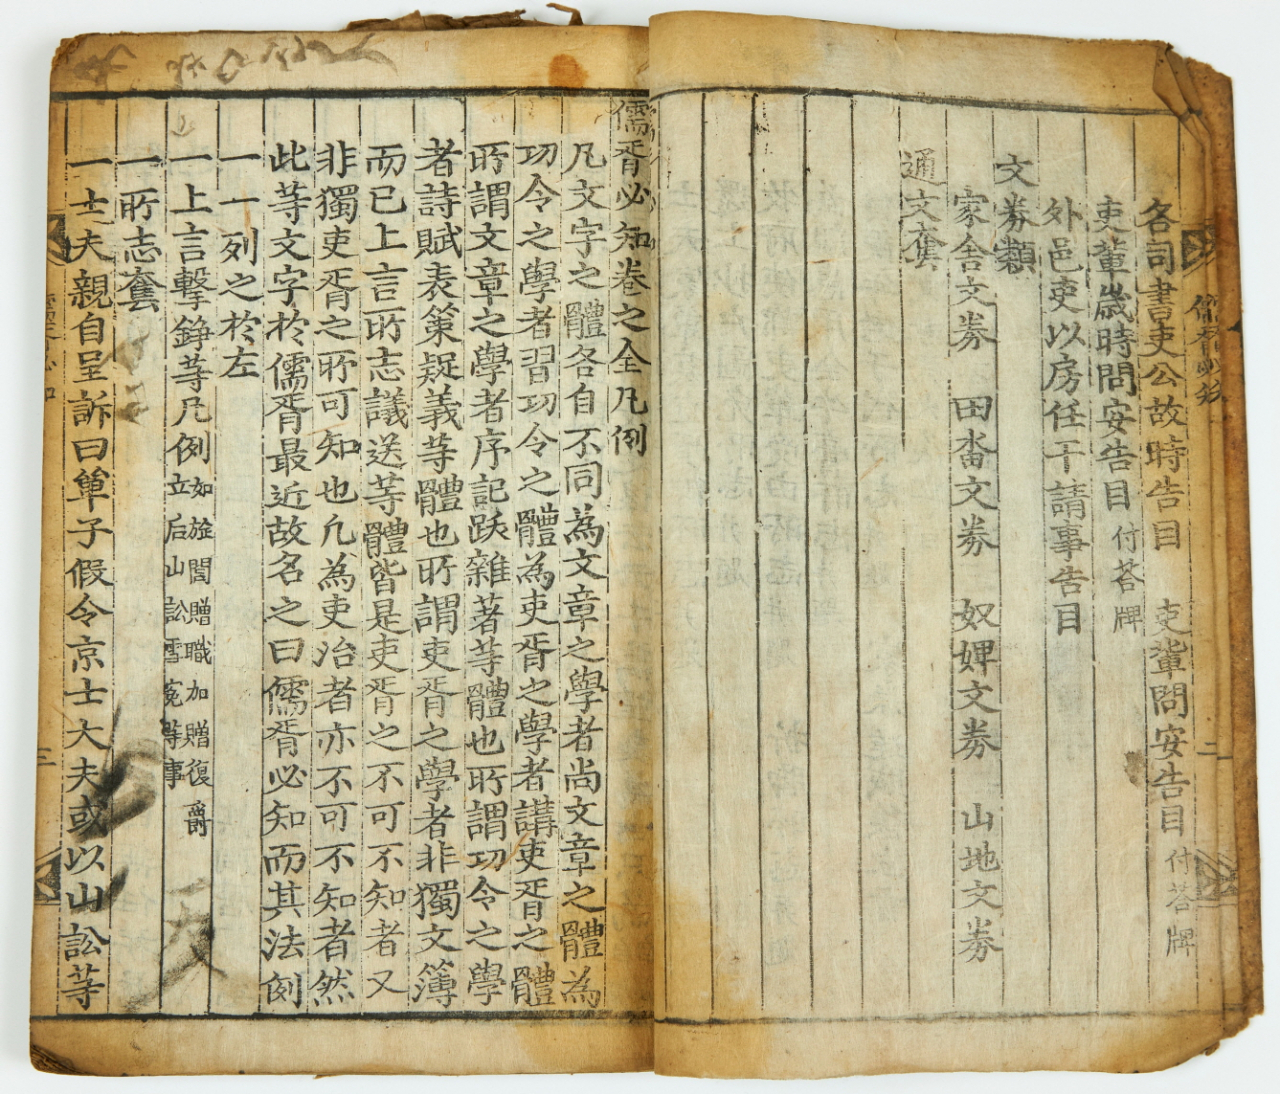 各司書吏公故時告目　吏軰問安告目 付荅牌
吏軰歲時問安告目 付荅牌
外邑吏以房任干請事告目
文劵類
家舍文劵　田畓文劵　奴婢文劵　山地文劵
通文套
儒胥必知卷之全凡例
凡文字之體各自不同爲文章之學者尚文章之體爲
功令之學者習功令之體爲吏胥之學者講吏胥之體
所謂文章之學者序記跋雜著等體也所謂功令之學
者詩賦表策疑義等體也所謂吏胥之學者非獨文簿
而已上言所志議送等體皆是吏胥之不可不知者又
非獨吏胥之所可知也凡爲吏治者亦不可不知者然
此等文字於儒胥最近故名之曰儒胥必知而其法例
一一列之於左
一上言擊錚等凡例 如旌閭贈職加贈復爵
立后山訟雪寃等事
一所志套
一士夫親自呈訴曰單子假令京士大夫或以山訟等